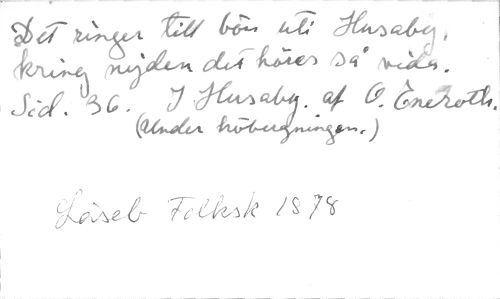 Det ringer till bön uti Husaby,
kring nejden det höres så vida.
Sid. 36. I Husaby. af O. Eneroth.
(Under höbergningen.)
Läseb Folksk 1878